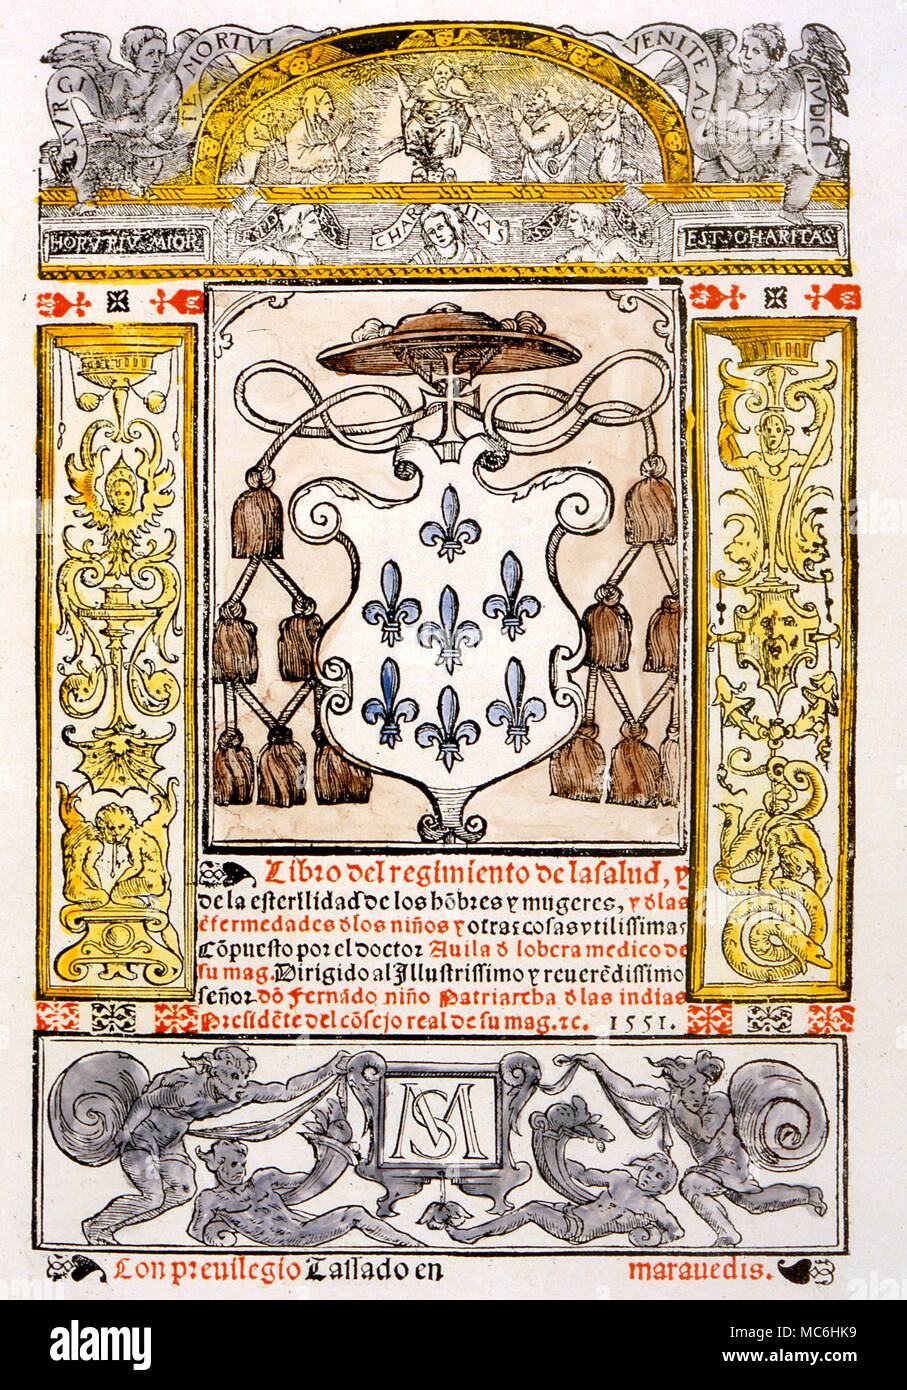 SVRGI TE MORTVI VENITE AD IVDICIA
CHARITAS
HORV PIV MIOR EST CHARITAS
Libro del regimiento de la salud, y
de la esterilidad de los hõbres y mugeres, y d̃ las
ẽfermedades d̃ los niños y otras cosas vtilissimas
Cõpuesto por el doctor Auila d̃ lobera medico de
su mag. Dirigido al Illustrissimo y reuerẽdissimo
señor dõ Fernãdo niño Patriarcha d̃ las indias
Presidẽte del cõsejo real de su mag. ⁊c. 1551.
MS
Con preuilegio Tassado en maravedis.
alamy
Image ID: MC6HK9
www.alamy.com